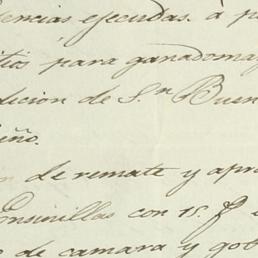 encias ejecudas. à p
itios para ganadomay
dicion de S.n Buen
eño.
n de remate y apro
Ensinillas con 15. f
o de camara y gob